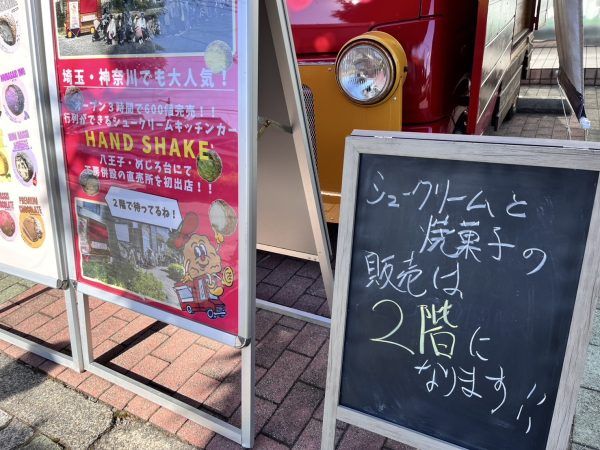 埼玉・神奈川でも大人気！
オープン3時間で600個完売！！
行列ができるシュークリームキッチンカー
HAND SHAKE
八王子・めじろ台にて
工房併設の直売所を初出店！！
２階で待ってるね！
PREMIUM
CHOCOLATE
シュークリームと
焼菓子の
販売は
2階に
なります!!